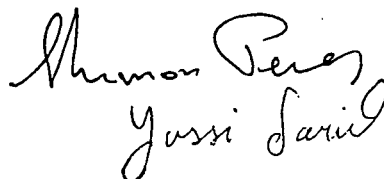 Shimon Peres
Yossi Sarid